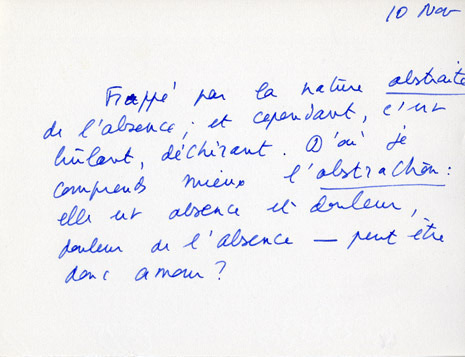 10 Nov
Frappé par la nature abstraite
de l'absence ; et cependant, c'est
brûlant, déchirant. D'où je
comprends mieux l'abstraction :
elle est absence et douleur,
douleur de l'absence — peut être
donc amour ?